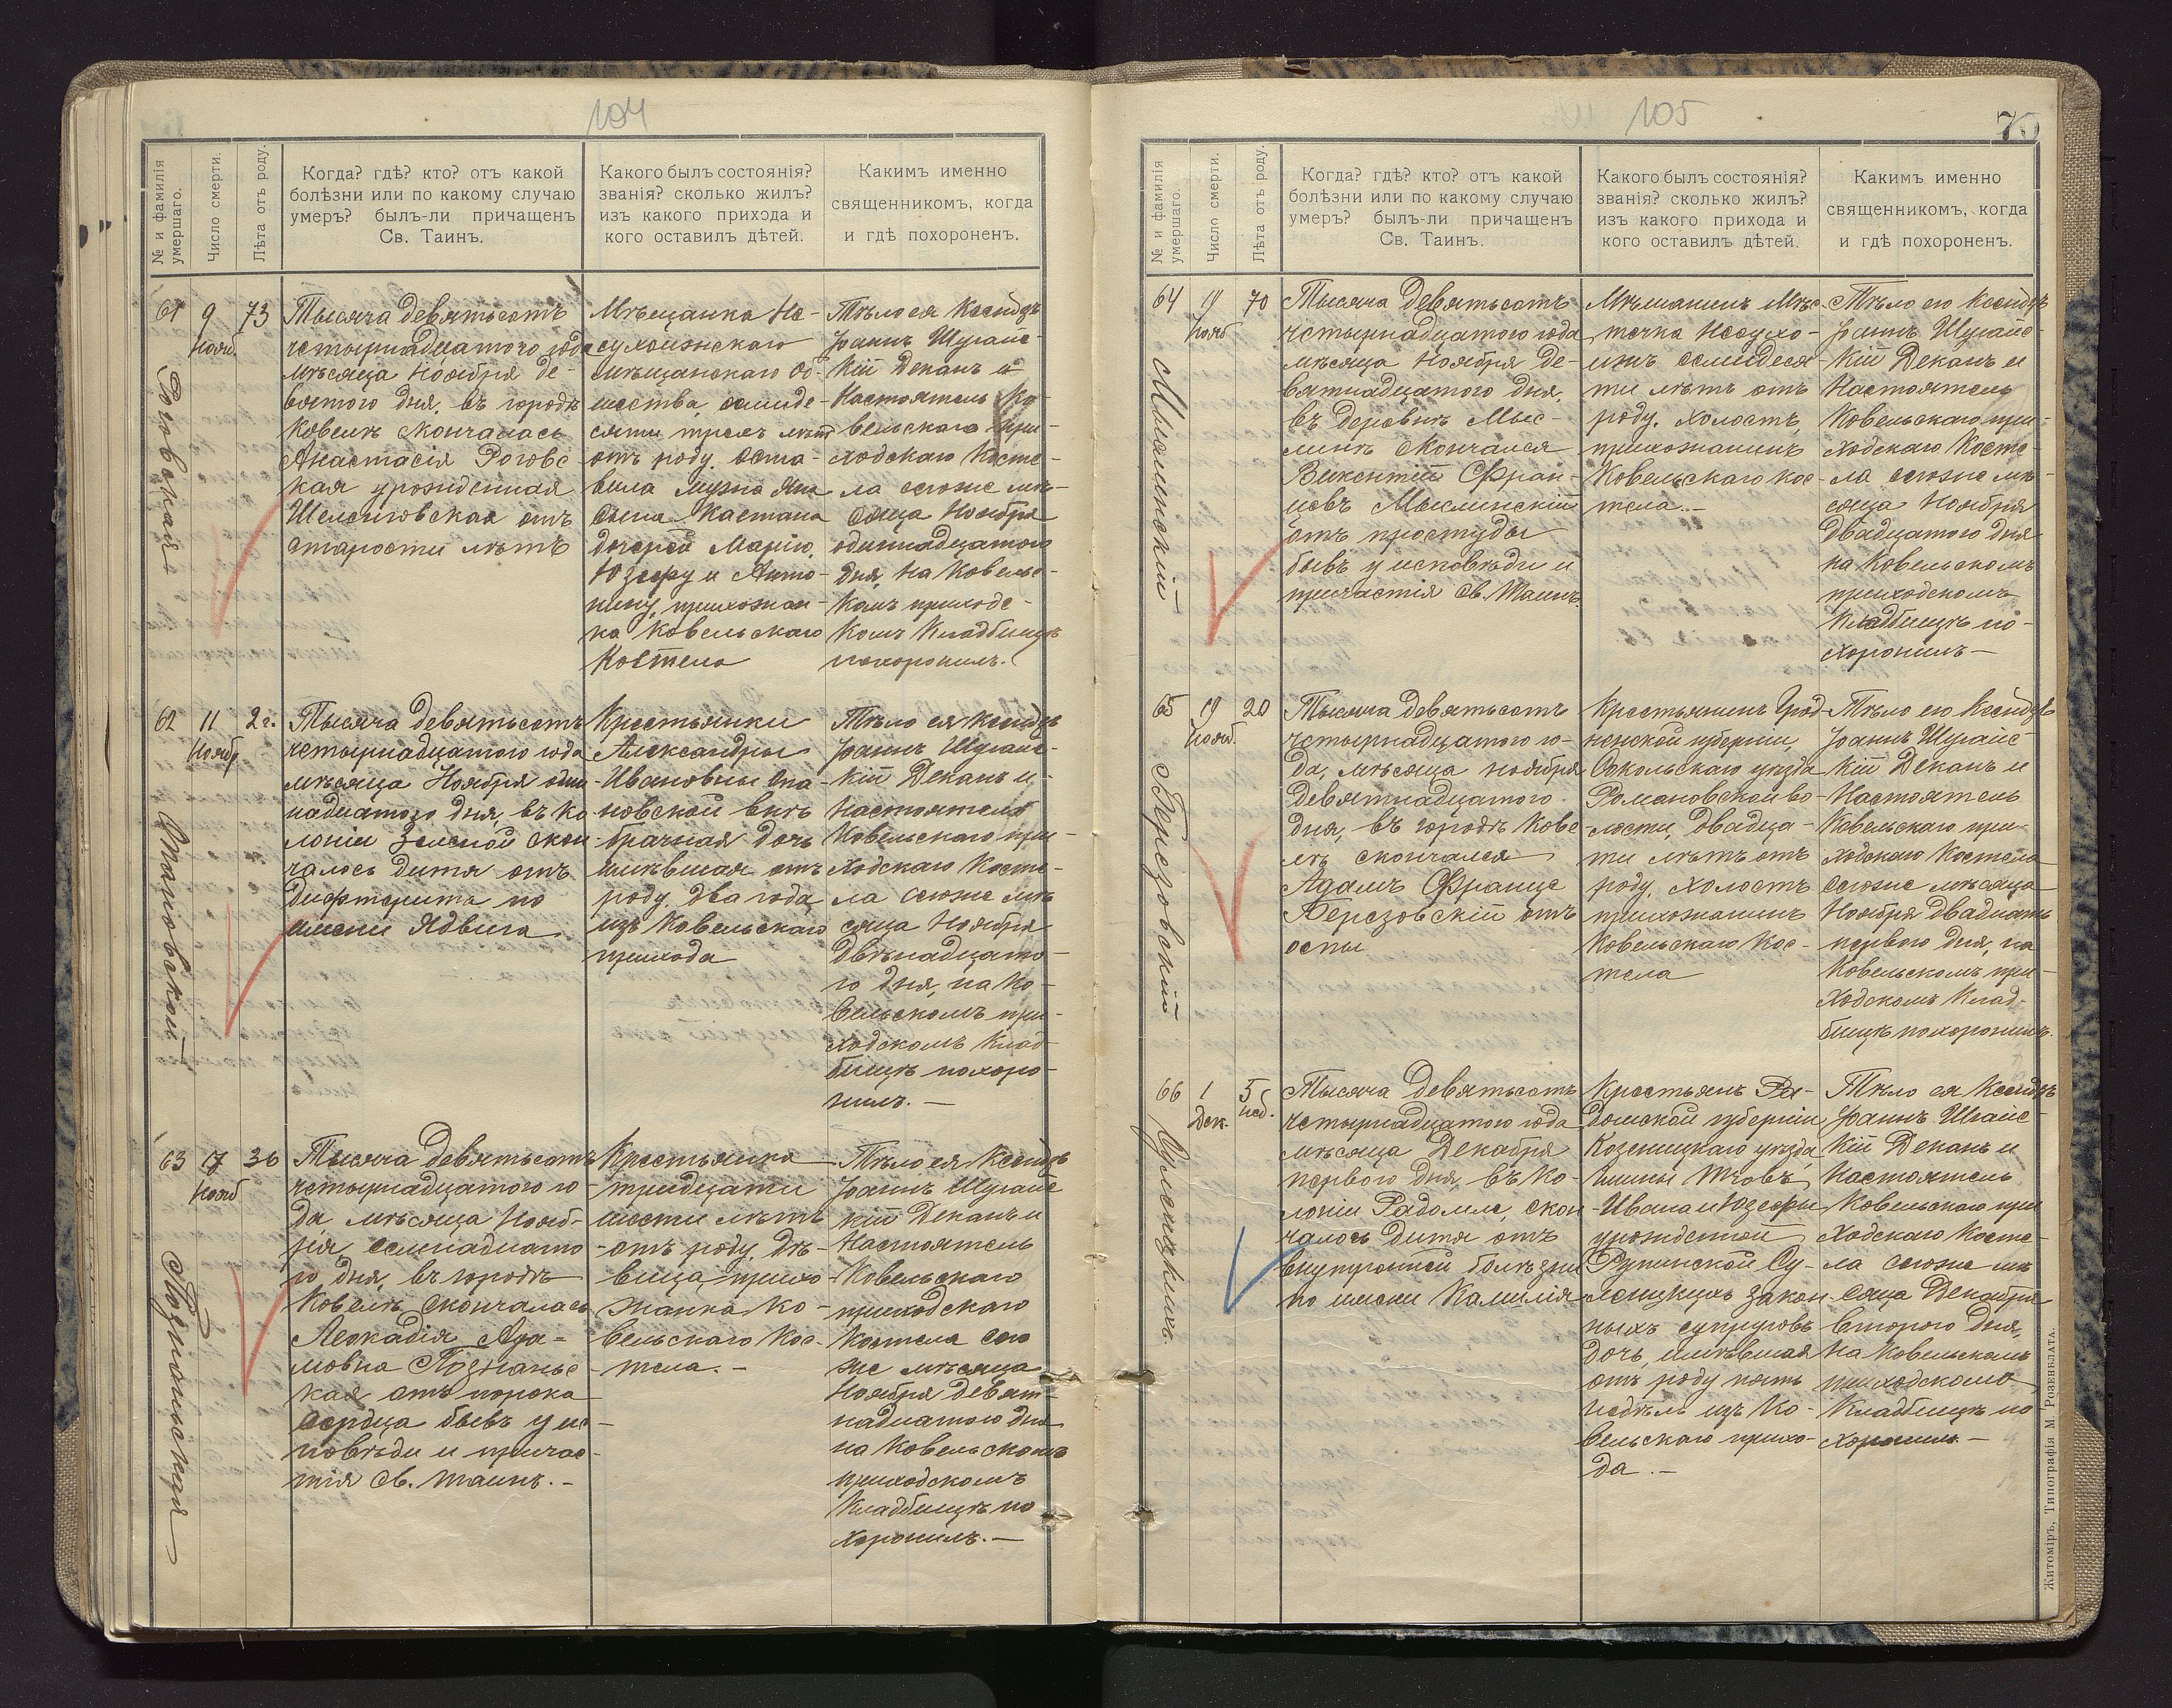 104
№ и фамилія умершаго.
Число смерти.
Лѣта отъ роду.
Когда? гдѣ? кто? отъ какой
болѣзни или по какому случаю
умеръ? былъ-ли причащенъ
Св. Таинъ.
Какого былъ состоянія?
званія? сколько жилъ?
изъ какого прихода и
кого оставилъ дѣтей.
Каким именно
священникомъ, когда
и гдѣ похороненъ.
61
Роговская
9
Нояб.
73
Тысяча девятьсотъ
четырнадцатого года
мѣсяца Ноября де-
вятого дня, въ городѣ
Ковелѣ скончалась
Анастасія Роговс
кая урожденная
отъ
старости лѣтъ
Мѣщанка Не-
сухоижскаго
мѣщанскаго об-
щества, семиде-
сяти трехъ лѣтъ
отъ роду. Оста-
вила мужа Яна
сына Каетана
дочерей Марію,
Юзефу и Анто-
нину, прихожан-
ка Ковельскаго
Костела
Тѣло ея Ксендзъ
Іоаннъ Шуманс-
кій Деканъ и
Настоятель Ко-
вельскаго при-
ходскаго Косте-
ла сегоже мѣ-
сяца Ноября
одиннадцатого
дня, на Ковельс-
комъ приходс-
комъ Кладбищѣ
похоронилъ.
62
11
Ноябр
2 г.
Тысяча девятьсотъ
четырнадцатого года
мѣсяца Ноября один-
надцатого дня, въ Ко
лоніи Зеленой скон
чалось дитя отъ
Дифтерита по
имени Ядвига
Крестьянки
Александры
Ивановны Ста-
новской внѣ
брачная дочь
имѣвшая отъ
роду два года
изъ Ковельскаго
прихода
Тѣло ея Ксендзъ
Іоаннъ
кій Деканъ и
Настоятель
Ковельскаго при-
ходскаго Косте-
ла сегоже мѣ
сяца Ноября
Двѣнадцато-
го дня, на Ко-
вельскомъ при-
ходскомъ Клад
бищѣ похоро-
нилъ.—
63
Познанская
17
Нояб
36
Тысяча девятьсотъ
четырнадцатого го-
да мѣсяца Нояб-
ря, семнадцато-
го дня, въ городѣ
Ковелѣ скончалась
Леокадія Ада-
мовна Познанс-
кая отъ порока
сердца бывъ у ис-
повѣди и причас-
тія Св. Таинъ.—
Крестьянка
тридцати
шести лѣтъ
отъ роду, дѣ-
вица, прихо
жанка Ко-
вельскаго Кос-
тела.—
Тѣло ея Ксендзъ
Іоаннъ
кій Деканъ и
Настоятель
Ковельскаго
приходскаго
Костела сего
же мѣсяца
Ноября девят-
надцатого дня
на Ковельскомъ
приходскомъ
Кладбищѣ по
хоронилъ.—
105
75
№ и фамилія умершаго.
Число смерти.
Лѣта отъ роду.
Когда? гдѣ? кто? отъ какой
болѣзни или по какому случаю
умеръ? былъ-ли причащенъ
Св. Таинъ.
Какого былъ состоянія?
званія? сколько жилъ?
изъ какого прихода и
кого оставилъ дѣтей.
Каким именно
священникомъ, когда
и гдѣ похороненъ.
64
19
Нояб
70
Тысяча девятьсотъ
четырнадцатого года
мѣсяца Ноября де-
вятнадцатого дня,
въ деревнѣ Мыс-
линѣ скончался
Викентій Фран-
цовъ Мыслинскій
отъ простуды
бывъ у исповѣди и
причастія Св. Таинъ.
Мѣщанинъ Мѣс-
течка Несухо-
ижъ семидеся
ти лѣтъ отъ
роду, холостъ,
прихожанинъ
Ковельскаго кос-
тела.—
Тѣло его Ксендзъ
Іоаннъ
кій Деканъ и
Настоятель
Ковельскаго при-
ходскаго Косте-
ла сегоже мѣ-
сяца Ноября
Двадцатого дня
на Ковельскомъ
приходскомъ
Кладбищѣ по-
хоронилъ—
65
Березовскій
19
Нояб.
20
Тысяча девятьсотъ
четырнадцатого го-
да, мѣсяца Ноября
Девятнадцатого
дня, въ городѣ Кове-
лѣ скончался
Адамъ Францс
Березовскій отъ
оспы
Крестьянинъ Грод
ненской губерніи,
Сокольскаго уѣзда
Романовской во-
лости, двадца-
ти лѣтъ отъ
роду, холостъ
прихожанинъ
Ковельскаго Кос-
тела
Тѣло его Ксендзъ
Іоаннъ
кій Деканъ и
Настоятель
Ковельскаго при-
ходскаго Костела
сегоже мѣсяца
Ноября двадцать
перваго дня, на
Ковельскомъ при-
ходскомъ Клад-
бищѣ похоронилъ.
66
1
Дек.
5
нед.
Тысяча девятьсотъ
четырнадцатого года
мѣсяца Декабря
перваго дня, въ Ко-
лоніи скон
чалось дитя отъ
внутренней болѣзни
по имени Камилія
Крестьянъ Ра-
домской губерніи
Козеницкаго уѣзда,
Гмины
Ивана и Юзефы
урожденной
законныхъ супруговъ
дочь, имѣвшая
отъ роду пять
недѣль изъ Ко-
вельскаго прихо-
да.—
Тѣло ея Ксендзъ
Іоаннъ
кій Деканъ и
Настоятель
Ковельскаго при
ходскаго Косте-
ла сегоже мѣ
сяца Декабря
второго дня,
на Ковельскомъ
приходскомъ
Кладбищѣ по
хоронилъ—
Житоміръ, Типографія М. Розенблата.